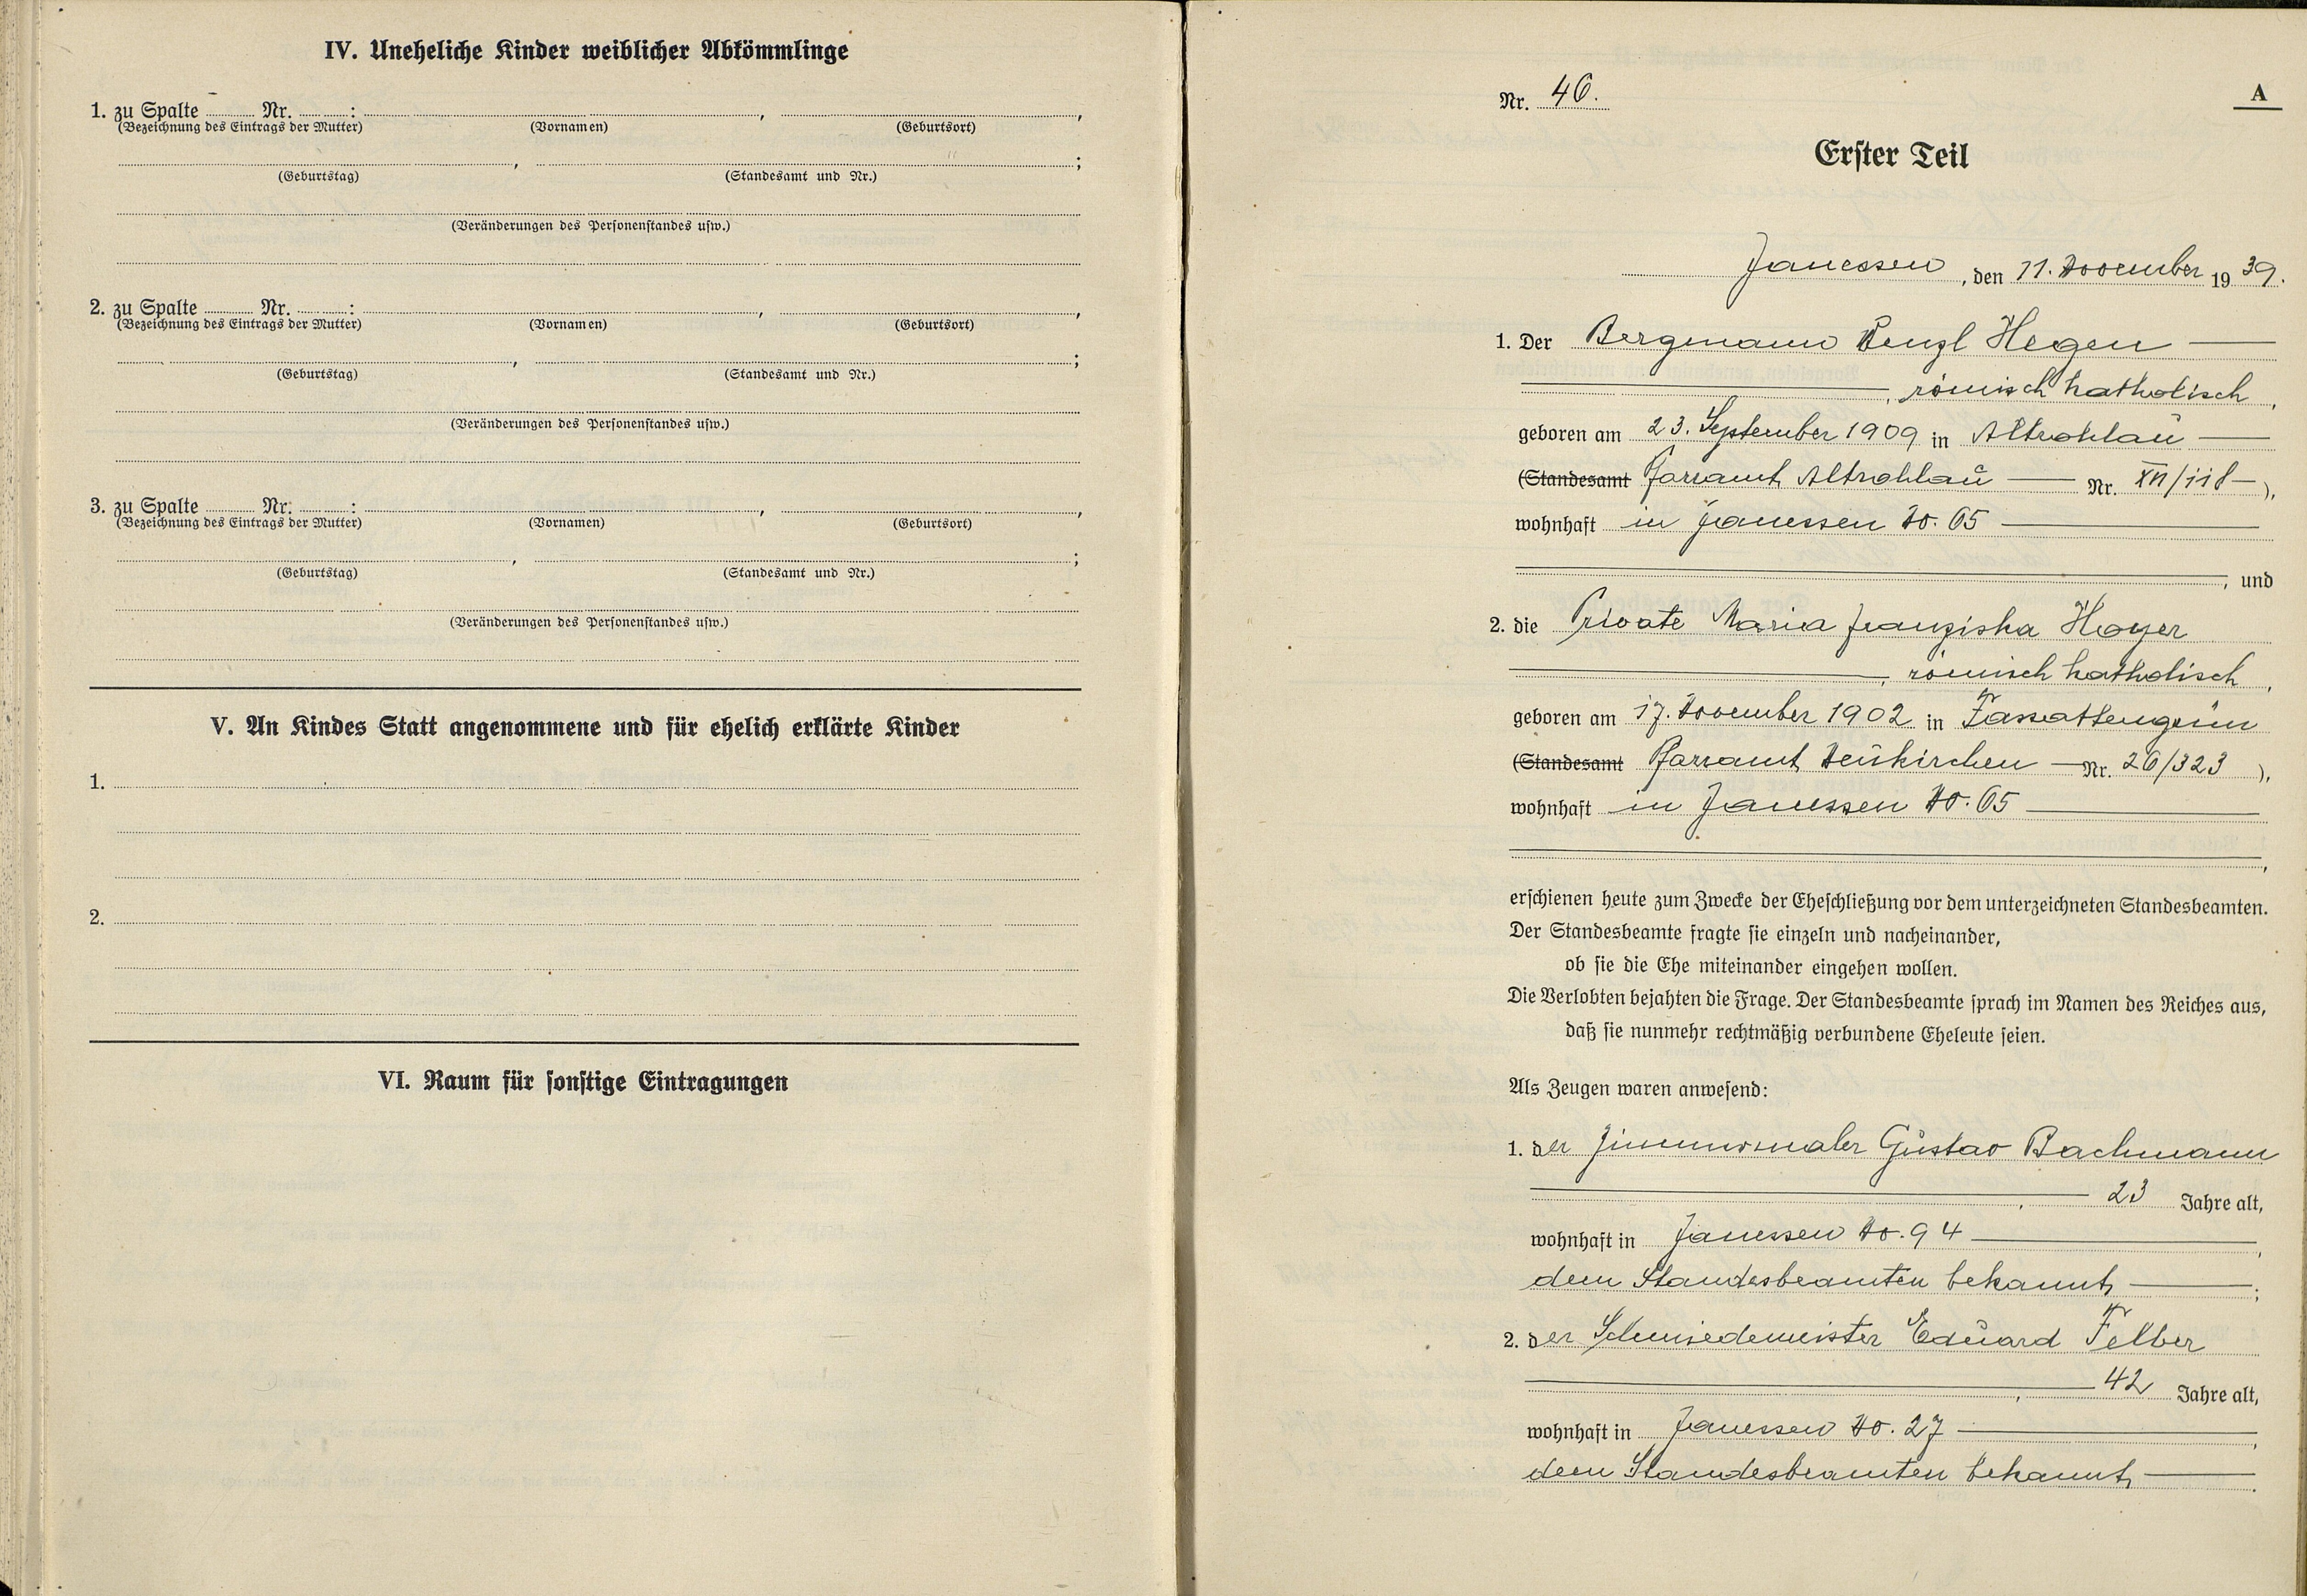 IV. Uneheliche Kinder weiblicher Abkömmlinge
1. zu Spalte Nr. : , ,
(Bezeichnung des Eintrags der Mutter) (Vornamen) (Geburtsort)
, ;
(Geburtstag) (Standesamt und Nr.)
(Veränderungen des Personenstandes usw.)
2. zu Spalte Nr. : , ,
(Bezeichnung des Eintrags der Mutter) (Vornamen) (Geburtsort)
, ;
(Geburtstag) (Standesamt und Nr.)
(Veränderungen des Personenstandes usw.)
3. zu Spalte Nr. : , ,
(Bezeichnung des Eintrags der Mutter) (Vornamen) (Geburtsort)
, ;
(Geburtstag) (Standesamt und Nr.)
(Veränderungen des Personenstandes usw.)
V. An Kindes Statt angenommene und für ehelich erklärte Kinder
1.
2.
VI. Raum für sonstige Eintragungen
Nr. 46.
A
Erster Teil
Janessen, den 11. November 1939.
1. Der Bergmann Wenzl Hegen
, römisch katholisch,
geboren am 23. September 1909 in Altrohlau
(Standesamt Pfarramt Altrohlau Nr. XII/118),
wohnhaft in Janessen No. 65
, und
2. die Private Maria Franziska Hoyer
, römisch katholisch,
geboren am 17. November 1902 in
(Standesamt Pfarramt Neukirchen Nr. 26/323),
wohnhaft in Janessen No. 65
,
erschienen heute zum Zwecke der Eheschließung vor dem unterzeichneten Standesbeamten.
Der Standesbeamte fragte sie einzeln und nacheinander,
ob sie die Ehe miteinander eingehen wollen.
Die Verlobten bejahten die Frage. Der Standesbeamte sprach im Namen des Reiches aus,
daß sie nunmehr rechtmäßig verbundene Eheleute seien.
Als Zeugen waren anwesend:
1. der Zimmermaler Gustav Bachmann
, 23 Jahre alt,
wohnhaft in Janessen No. 94,
dem Standesbeamten bekannt;
2. der Schmiedemeister Eduard Felber
, 42 Jahre alt,
wohnhaft in Janessen No. 27,
dem Standesbeamten bekannt.